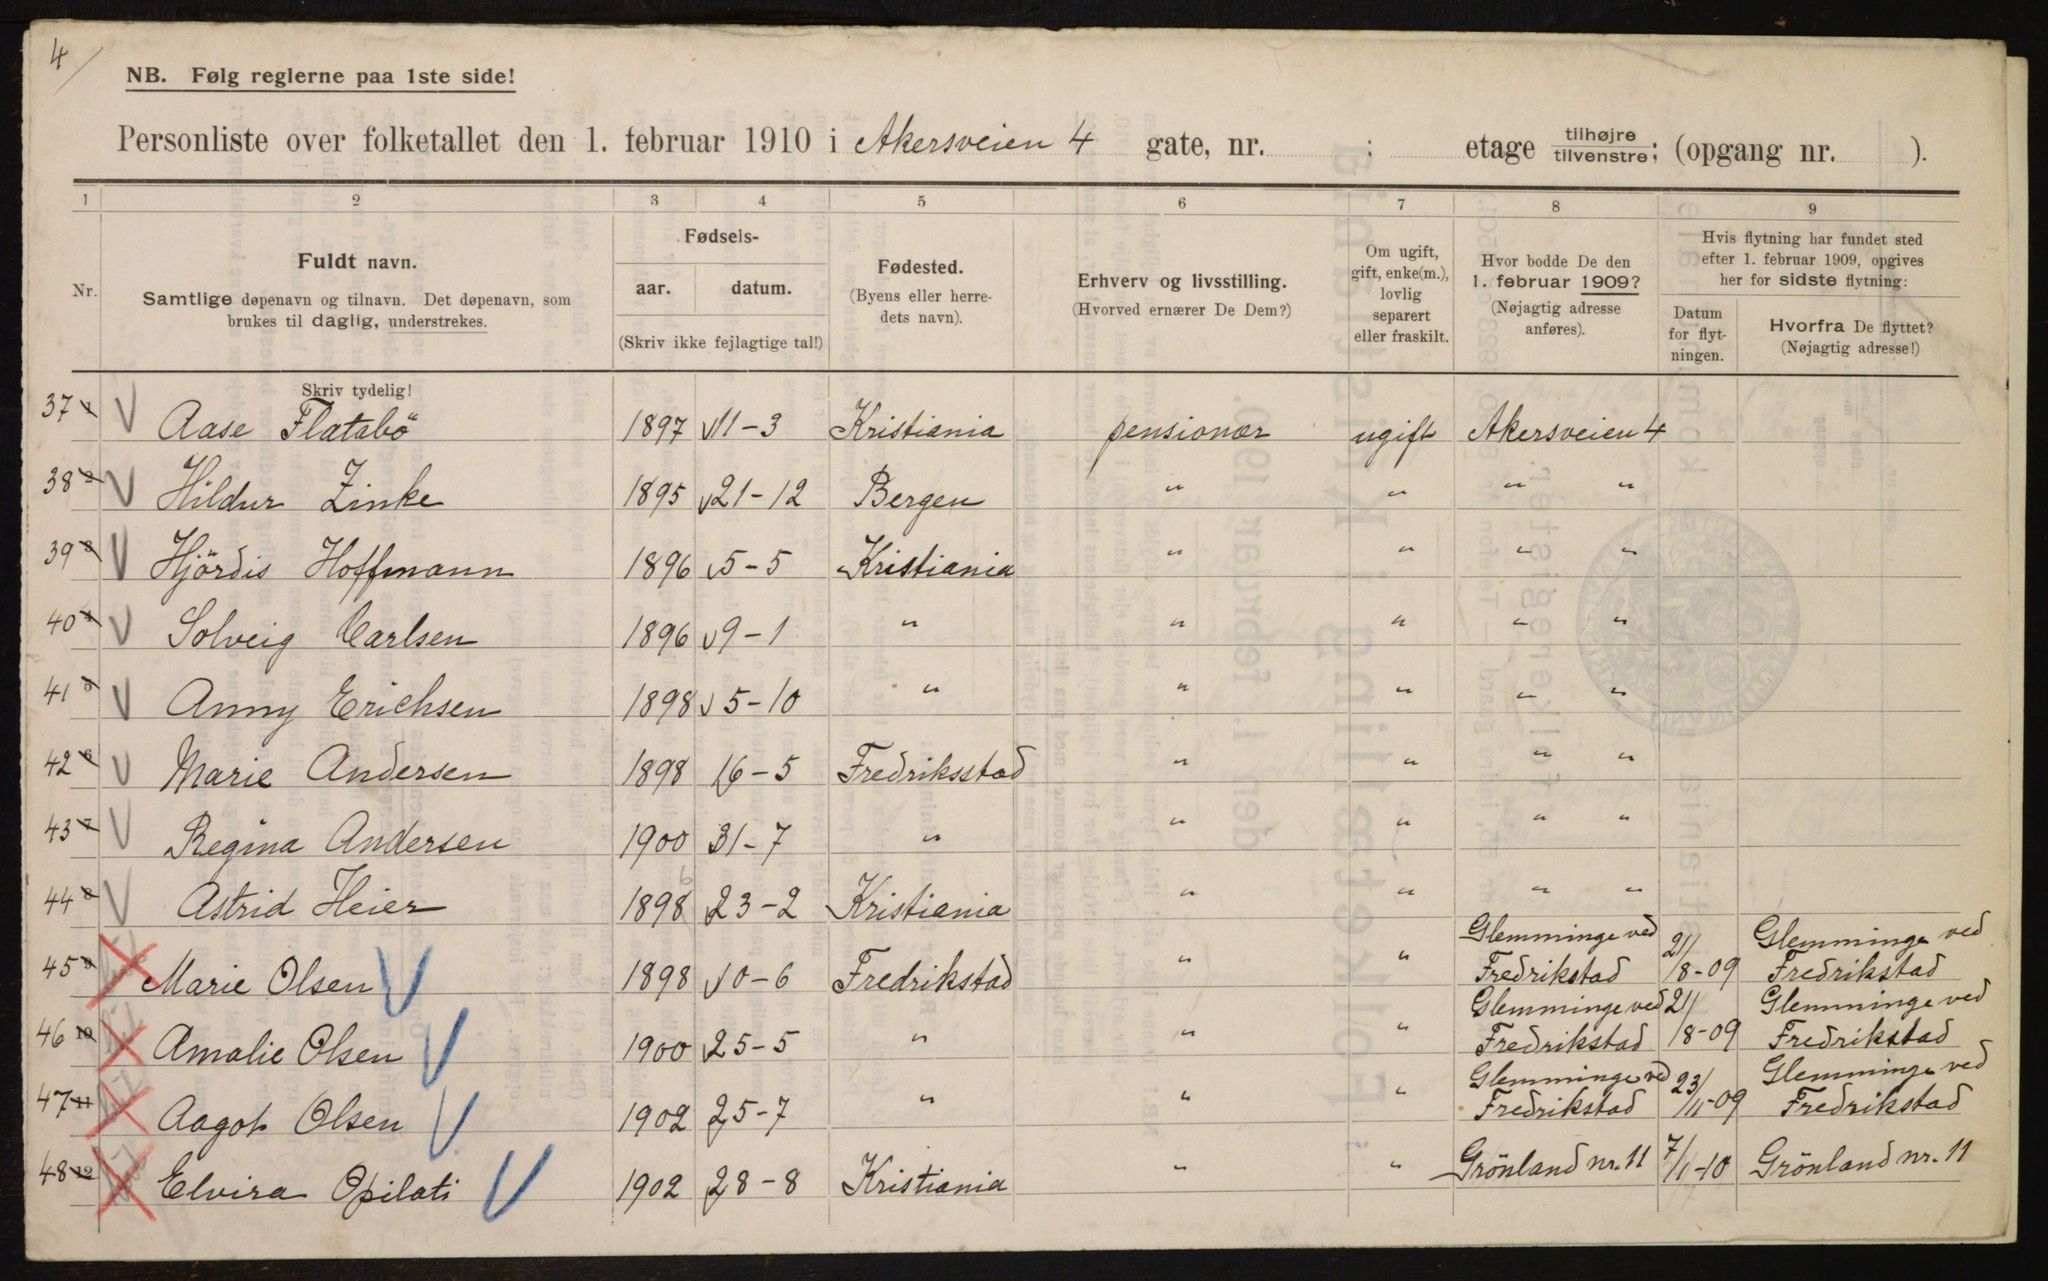 4
NB. Følg reglerne paa 1ste side!
Personliste over folketallet den 1. februar 1910 i Akersveien 4 gate, nr. : etage tilhøjre/tilvenstre; (opgang nr. ).
1 2 3 4 5 6 7 8 9
Nr.
Fuldt navn.
Samtlige døpenavn og tilnavn. Det døpenavn, som
brukes til daglig, understrekes.
Skriv tydelig!
Fødsels-
aar. datum.
(Skriv ikke fejlagtige tal!)
Fødested.
(Byens eller herre-
dets navn).
Erhverv og livsstilling.
(Hvorved ernærer De Dem?)
Om ugift,
gift, enke(m.),
lovlig
separert
eller fraskilt.
Hvor bodde De den
1. februar 1909?
(Nøjagtig adresse
anføres).
Hvis flytning har fundet sted
efter 1. februar 1909, opgives
her for sidste flytning:
Datum
for flyt-
ningen.
Hvorfra De flyttet?
(Nøjagtig adresse!)
37 1 Aase Flatabö 1897 11-3 Kristiania pensionær ugift Akersveien 4
38 2 Hildur Zinke 1895 21-12 Bergen " " " "
39 3 Hjördis Hoffmann 1896 5-5 Kristiania " " " "
40 4 Solveig Carlsen 1896 9-1 " " " " "
41 5 Anny Erichsen 1898 5-10 " " " " "
42 6 Marie Andersen 1898 16-5 Fredriksstad " " " "
43 7 Regina Andersen 1900 31-7 " " " " "
44 8 Astrid Heier 1898 23-2 Kristiania " " " "
45 9 Marie Olsen 1898 10-6 Fredrikstad " " Glemminge ved Fredrikstad 21/8-09 Glemminge ved Fredrikstad
46 10 Amalie Olsen 1900 25-5 " " " Glemminge ved Fredrikstad 21/8-09 Glemminge ved Fredrikstad
47 11 Aagot Olsen 1902 25-7 " " " Glemminge ved Fredrikstad 23/11-09 Glemminge ved Fredrikstad
48 12 Elvira Opilati 1902 28-8 Kristiania " " Grönland nr. 11 7/1-10 Grönland nr. 11